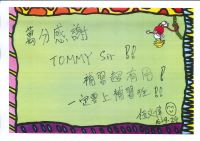 萬分感謝
TOMMY Sir !!
補習超有用!
一定要上補習班!!